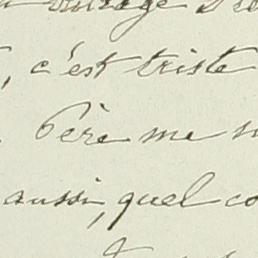 , c'est triste
Père me
aussi, quel co